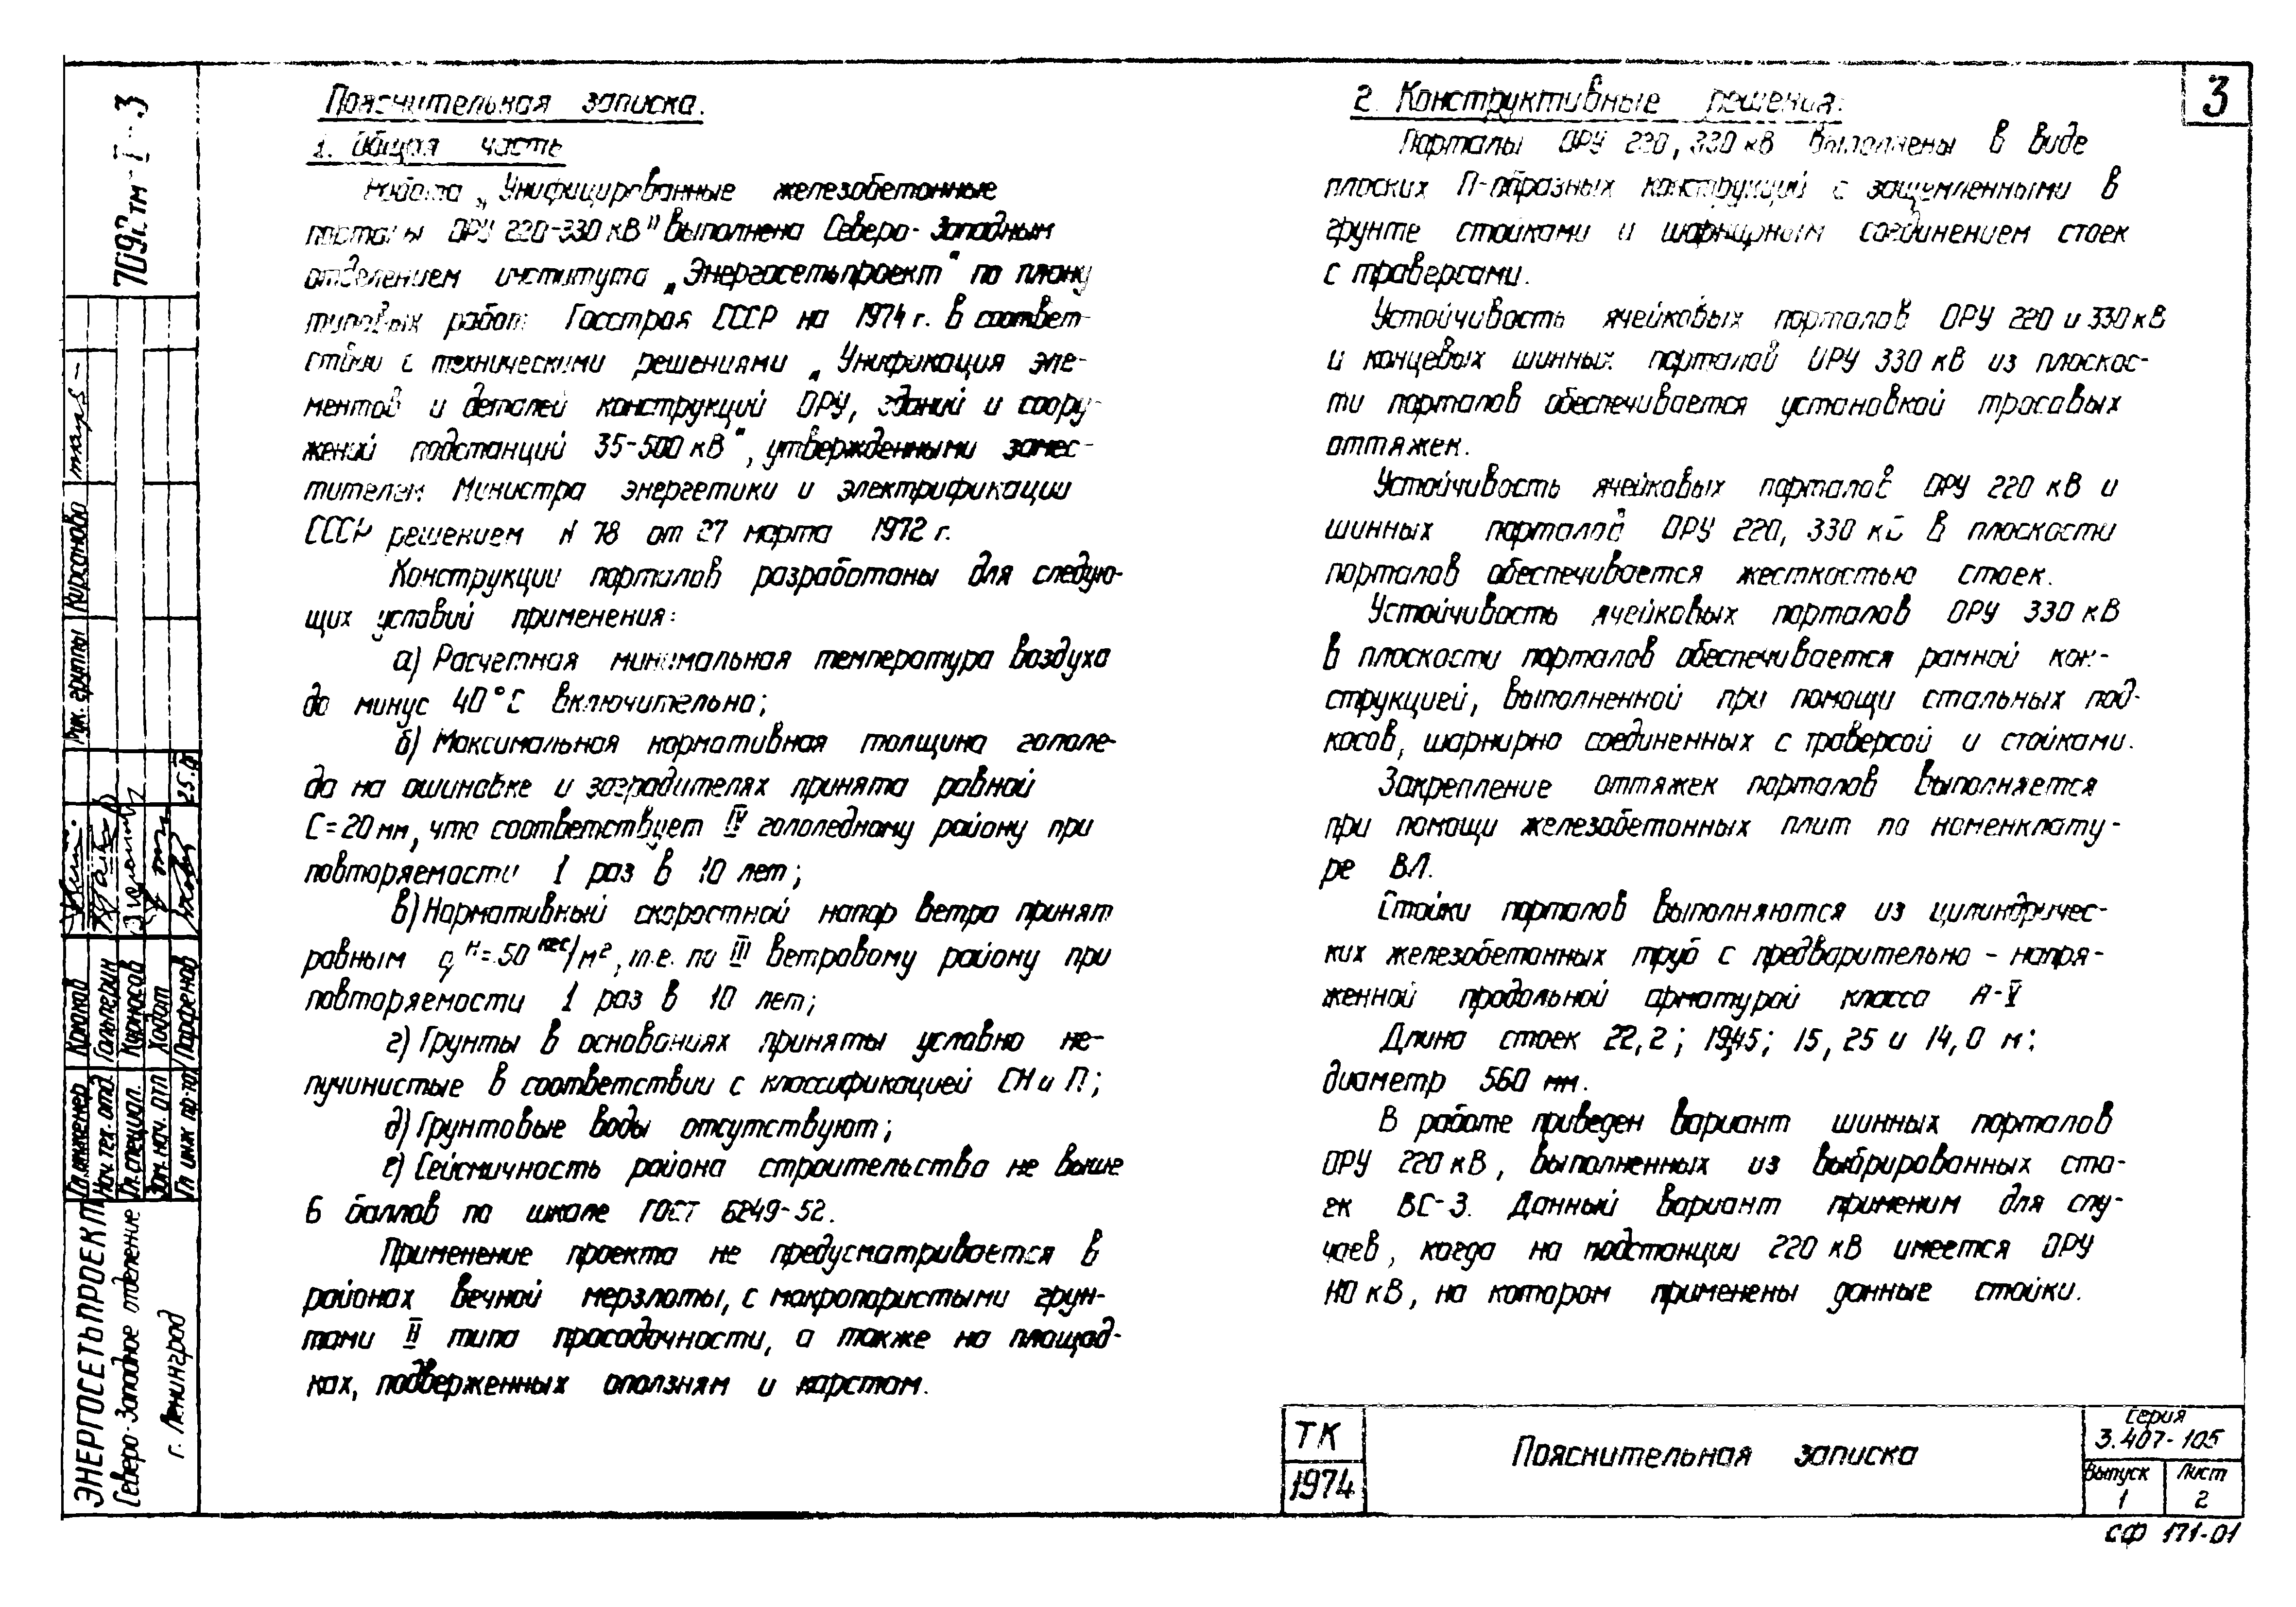 3
Пояснительная записка.
1. Общая часть
Работа „Унифицированные железобетонные
порталы ОРУ 220-330 кВ" выполнена Северо-Западным
отделением института „Энергосетьпроект" по плану
типовых работ Госстроя СССР на 1974 г. в соответ-
ствии с техническими решениями „Унификация эле-
ментов и деталей конструкций ОРУ, зданий и соору-
жений подстанций 35-500 кВ", утвержденными замес-
тителем Министра энергетики и электрификации
СССР решением N 78 от 27 марта 1972 г.
Конструкции порталов разработаны для следую-
щих условий применения:
а) Расчетная минимальная температура воздуха
до минус 40°С включительно;
б) Максимальная нормативная толщина гололе-
да на ошиновке и заградителях принята равной
С=20 мм, что соответствует IV гололедному району при
повторяемости 1 раз в 10 лет;
в) Нормативный скоростной напор ветра принят
равным qᴴ=50 кгс/м², т.е. по III ветровому району при
повторяемости 1 раз в 10 лет;
г) Грунты в основаниях приняты условно не-
пучинистые в соответствии с классификацией СН и П;
д) Грунтовые воды отсутствуют;
е) Сейсмичность района строительства не выше
6 баллов по шкале ГОСТ 6249-52.
Применение проекта не предусматривается в
районах вечной мерзлоты, с макропористыми грун-
тами II типа просадочности, а также на площад-
ках, подверженных оползням и карстам.
2. Конструктивные решения.
Порталы ОРУ 220, 330 кВ выполнены в виде
плоских П-образных конструкций с защемленными в
грунте стойками и шарнирным соединением стоек
с траверсами.
Устойчивость ячейковых порталов ОРУ 220 и 330 кВ
и концевых шинных порталов ОРУ 330 кВ из плоскос-
ти порталов обеспечивается установкой тросовых
оттяжек.
Устойчивость ячейковых порталов ОРУ 220 кВ и
шинных порталов ОРУ 220, 330 кВ в плоскости
порталов обеспечивается жесткостью стоек.
Устойчивость ячейковых порталов ОРУ 330 кВ
в плоскости порталов обеспечивается рамной кон-
струкцией, выполненной при помощи стальных под-
косов, шарнирно соединенных с траверсой и стойками.
Закрепление оттяжек порталов выполняется
при помощи железобетонных плит по номенклату-
ре ВЛ.
Стойки порталов выполняются из цилиндричес-
ких железобетонных труб с предварительно-напря-
женной продольной арматурой класса А-V
Длина стоек 22,2; 19,45; 15,25 и 14,0 м;
диаметр 560 мм.
В работе приведен вариант шинных порталов
ОРУ 220 кВ, выполненных из выбрированных сто-
ек ВС-3. Данный вариант применим для слу-
чаев, когда на подстанции 220 кВ имеется ОРУ
110 кВ, на котором применены данные стойки.
ТК
1974
Пояснительная записка
Серия
3.407-105
Выпуск
1
Лист
2
СФ 171-01
7092тм-I-3
Рук. группы Кирсанова
Гл. инженер Крюков
Нач. тех. отд. Гальперин
Гл. специал. Курносов
Зам. нач. ОТП Ходот
Гл инж пр-та Парфенов
ЭНЕРГОСЕТЬПРОЕКТ
Северо-Западное отделение
г. Ленинград